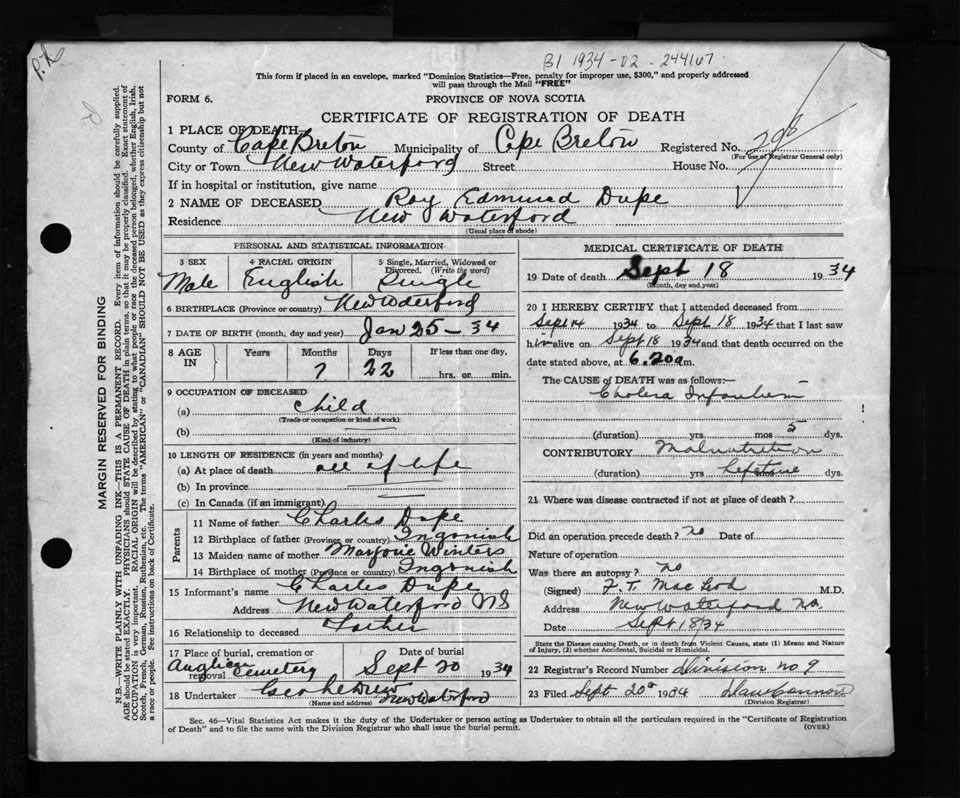 P.L.
B1 1934-02-244107
This form if placed in an envelope, marked "Dominion Statistics—Free, penalty for improper use, $300," and properly addressed
will pass through the Mail "FREE"
FORM 6.
PROVINCE OF NOVA SCOTIA
CERTIFICATE OF REGISTRATION OF DEATH
1 PLACE OF DEATH—
County of Cape Breton Municipality of Cape Breton Registered No. 298
(For use of Registrar General only)
City or Town New Waterford Street House No.
If in hospital or institution, give name
2 NAME OF DECEASED Roy Edmund Dupe
Residence New Waterford
(Usual place of abode)
PERSONAL AND STATISTICAL INFORMATION
3 SEX Male
4 RACIAL ORIGIN English
5 Single, Married, Widowed or Divorced. (Write the word) Single
6 BIRTHPLACE (Province or country) New Waterford
7 DATE OF BIRTH (month, day and year) Jan 25 - 34
8 AGE IN Years Months Days If less than one day,
7 22 hrs. or min.
9 OCCUPATION OF DECEASED
(a) Child
(Trade or occupation or kind of work)
(b)
(Kind of industry)
10 LENGTH OF RESIDENCE (in years and months)
(a) At place of death all of life
(b) In province
(c) In Canada (if an immigrant)
Parents
11 Name of father Charles Dupe
12 Birthplace of father (Province or country) Ingonish
13 Maiden name of mother Marjorie Winters
14 Birthplace of mother (Province or country) Ingonish
15 Informant's name Charles Dupe
Address New Waterford NS
16 Relationship to deceased Father
17 Place of burial, cremation or removal Anglican Cemetery
Date of burial Sept 20 1934
18 Undertaker Geo New Waterford
(Name and address)
MEDICAL CERTIFICATE OF DEATH
19 Date of death Sept 18 1934
(Month, day and year)
20 I HEREBY CERTIFY that I attended deceased from
Sept 14 1934 to Sept 18 1934 that I last saw
him alive on Sept 18 1934 and that death occurred on the
date stated above, at 6.20 a m.
The CAUSE OF DEATH was as follows:—
Cholera Infantum
(duration) yrs mos 5 dys.
CONTRIBUTORY Malnutrition
(duration) yrs mos lifetime dys.
21 Where was disease contracted if not at place of death?
Did an operation precede death? no Date of
Nature of operation
Was there an autopsy? no
(Signed) F. T. MacLeod M.D.
Address New Waterford NS.
Date Sept 18/34
State the Disease causing Death, or in Death from Violent Causes, state (1) Means and Nature of Injury, (2) whether Accidental, Suicidal or Homicidal.
22 Registrar's Record Number Division no 9
23 Filed Sept 20th 1934
(Division Registrar)
Sec. 46—Vital Statistics Act makes it the duty of the Undertaker or person acting as Undertaker to obtain all the particulars required in the "Certificate of Registration
of Death" and to file the same with the Division Registrar who shall issue the burial permit.
(OVER)
MARGIN RESERVED FOR BINDING
N.B.—WRITE PLAINLY WITH UNFADING INK—THIS IS A PERMANENT RECORD. Every item of information should be carefully supplied.
AGE should be stated EXACTLY. PHYSICIANS should STATE CAUSE OF DEATH in plain terms, so that it may be properly classified. Exact statement of
OCCUPATION is very important. RACIAL ORIGIN will be described by stating to what people or race the deceased person belonged, whether English, Irish,
Scotch, French, German, Russian, Ruthenian, etc. The terms "AMERICAN" or "CANADIAN" SHOULD NOT BE USED as they express citizenship but not
a race or people. See instructions on back of Certificate.